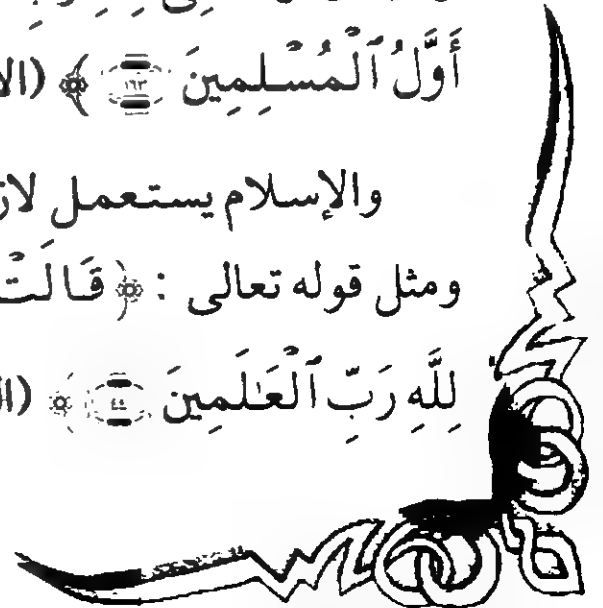 أَوَّلُ ٱلْمُسْلِمِينَ ١٦٣ ﴾
والإسلام يستعمل
ومثل قوله تعالى : ﴿ قَالَتْ
لِلَّهِ رَبِّ ٱلْعَـٰلَمِينَ ٤٤ ﴾